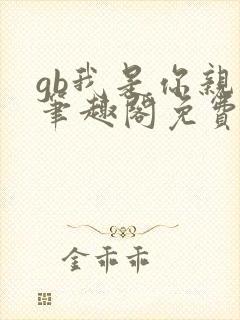 gb我是你親
筆趣閣免費
金乖乖